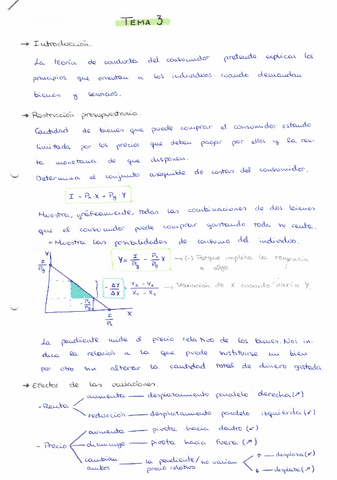 TEMA 3
→ Introducción.
La teoría de conducta del consumidor pretende explicar los
principios que orientan a los individuos cuando demandan
bienes y servicios.
→ Restricción presupuestaria.
Cantidad de bienes que puede comprar el consumidor estando
limitada por los precios que deben pagar por ellos y la ren-
ta monetaria de que disponen.
Determina el conjunto asequible de cestas del consumidor.
I = Px · X + Py · Y
Muestra, gráficamente, todas las combinaciones de dos bienes
que el consumidor puede comprar gastando toda su renta.
- Muestra las posibilidades de consumo del individuo.
Y = I/Py - Px/Py X → (-) Porque implica la renuncia
a algo
Y
I/Py
- ΔY/ΔX
→ Variación de X cuando varía Y
- Px/Py
X
I/Px
La pendiente mide el precio relativo de los bienes. Nos in-
dica la relación a la que puede sustituirse un bien
por otro sin alterar la cantidad total de dinero gastada.
→ Efectos de las variaciones.
- Renta
aumenta — desplazamiento paralelo derecha (↗)
reducción — desplazamiento paralelo izquierda (↙)
- Precio
aumenta — pivota hacia dentro (↙)
disminuye — pivota hacia fuera (↗)
cambian ambos — la pendiente/precio relativo no varían
↑ desplaza (↙)
↓ desplaza (↗)